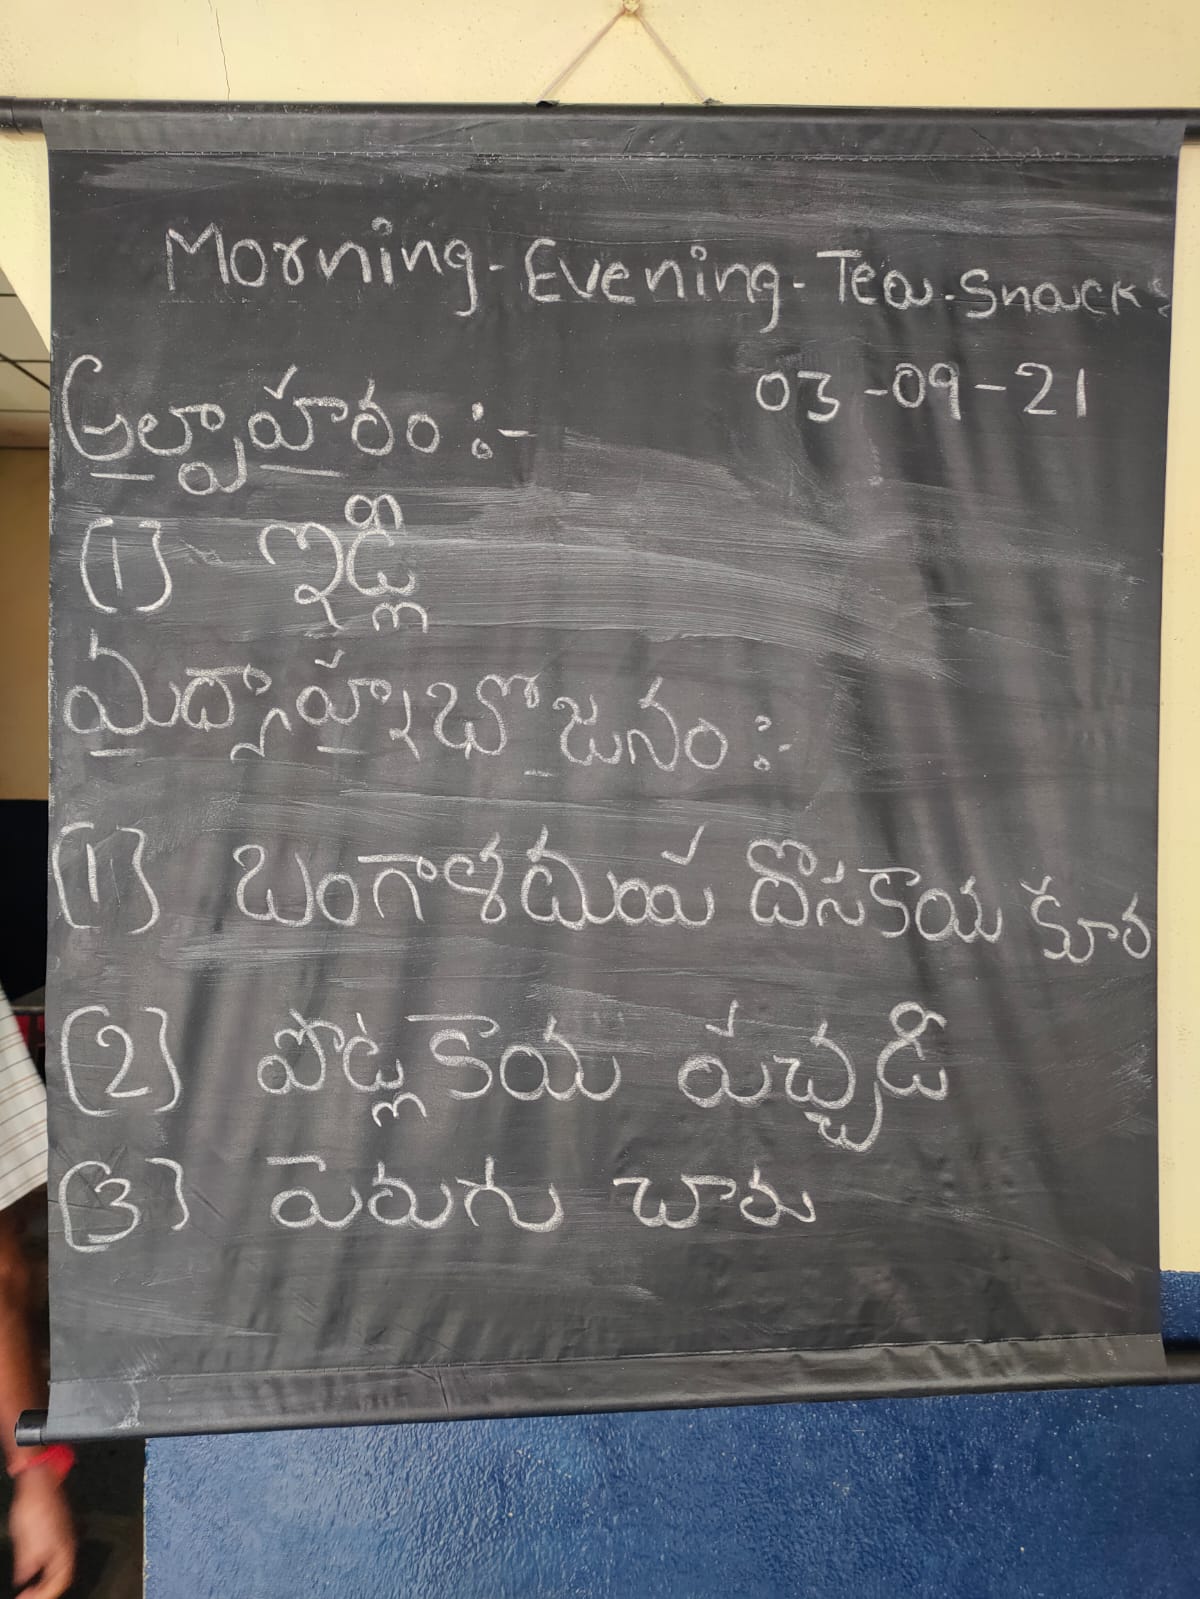 Morning-Evening-Tea-Snacks
03-09-21
అల్పాహరం :-
(1) ఇడ్లీ
మద్యాహ్నభోజనం :-
(1) బంగాళదుంప దోసకాయ కూర
(2) పొట్లకాయ పచ్చడి
(3) పెరుగు చారు